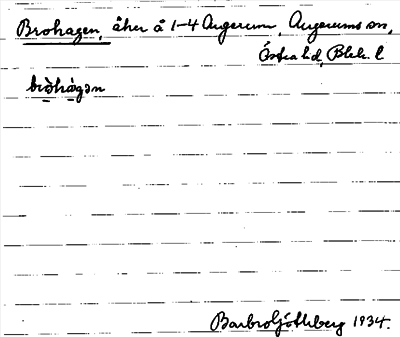 Brohagen, åker å 1-4 Augerum, Augerums sn,
Östra hd, Blek. l
bròhàgən
Barbro Götlberg 1934.